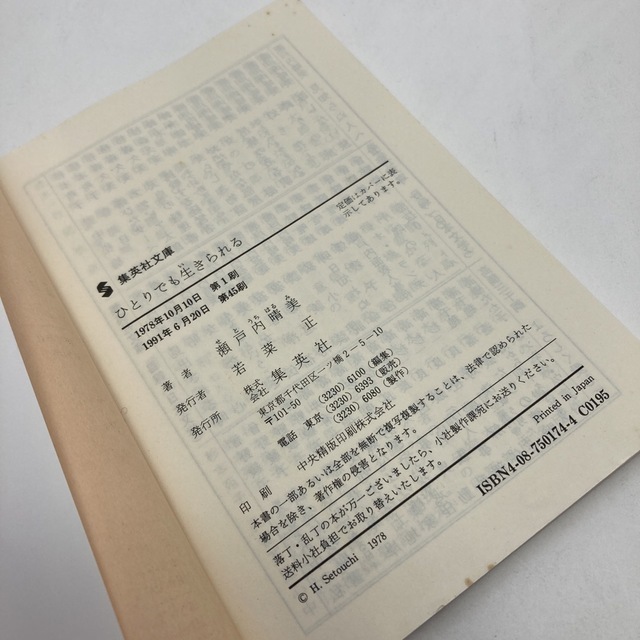 集英社文庫
ひとりでも生きられる
定価はカバーに表
示してあります。
1978年10月10日 第1刷
1991年6月20日 第45刷
せとうちはるみ
著者 瀬戸内晴美
発行者 若菜正
発行所 株式会社 集英社
東京都千代田区一ツ橋2-5-10
〒101-50
(3230) 6100 (編集)
電話 東京 (3230) 6393 (販売)
(3230) 6080 (製作)
印刷 中央精版印刷株式会社
本書の一部あるいは全部を無断で複写複製することは、法律で認められた
場合を除き、著作権の侵害となります。
落丁・乱丁の本が万一ございましたら、小社製作課宛にお送りください。
送料小社負担でお取り替えいたします。
© H. Setouchi 1978
Printed in Japan
ISBN4-08-750174-4 C0195